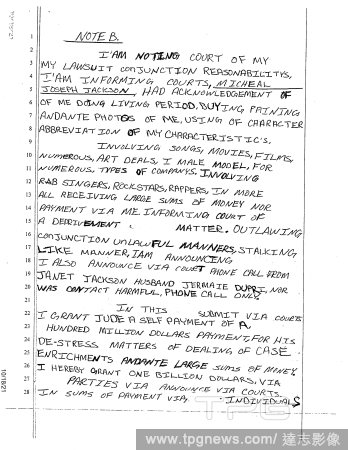 NOTE B.
I'AM NOTING COURT OF MY
MY LAWSUIT CONJUNCTION REASONABILITYS,
I'AM INFORMING COURTS, MICHEAL
JOSEPH JACKSON, HAD ACKNOWLEDGEMENT OF
OF ME DOING LIVING PERIOD, BUYING, PAINING
ANDANTE PHOTOS OF ME, USING OF CHARACTER
ABBREVIATION OF MY CHARACTERISTIC'S,
INVOLVING SONGS, MOVIES, FILMS,
NUMEROUS, ART DEALS, I MALE MODEL, FOR
NUMEROUS, TYPES OF COMPANYS. INVOLVING
R&B SINGERS, ROCKSTARS, RAPPERS, IN MORE
ALL RECEIVING LARGE SUMS OF MONEY NOR
PAYMENT VIA ME. INFORMING COURT OF
A DEPRIVEMENT MATTER. OUTLAWING
CONJUNCTION UNLAWFUL MANNERS, STALKING
LIKE MANNER, IAM ANNOUNCING
I ALSO ANNOUNCE VIA COURT PHONE CALL FROM
JANET JACKSON HUSBAND JERMAIE DUPRI, NOR
WAS CONTACT HARMFUL, PHONE CALL ONLY,
IN THIS SUBMIT VIA COURTS
I GRANT JUDE A SELF PAYMENT OF A
HUNDRED MILLION DOLLARS PAYMENT, FOR HIS
DE-STRESS MATTERS OF DEALING OF CASE
ENRICHMENTS ANDANTE LARGE SUMS OF MONEY.
I HEREBY GRANT ONE BILLION DOLLARS, VIA
PARTIES VIA ANNOUNCE VIA COURTS.
IN SUMS OF PAYMENT VIA, INDIVIDUALS
1
2
3
4
5
6
7
8
9
10
11
12
13
14
15
16
17
18
19
20
21
22
23
24
25
26
27
28
10/18/21
TPG
www.tpgnews.com / 達志影像